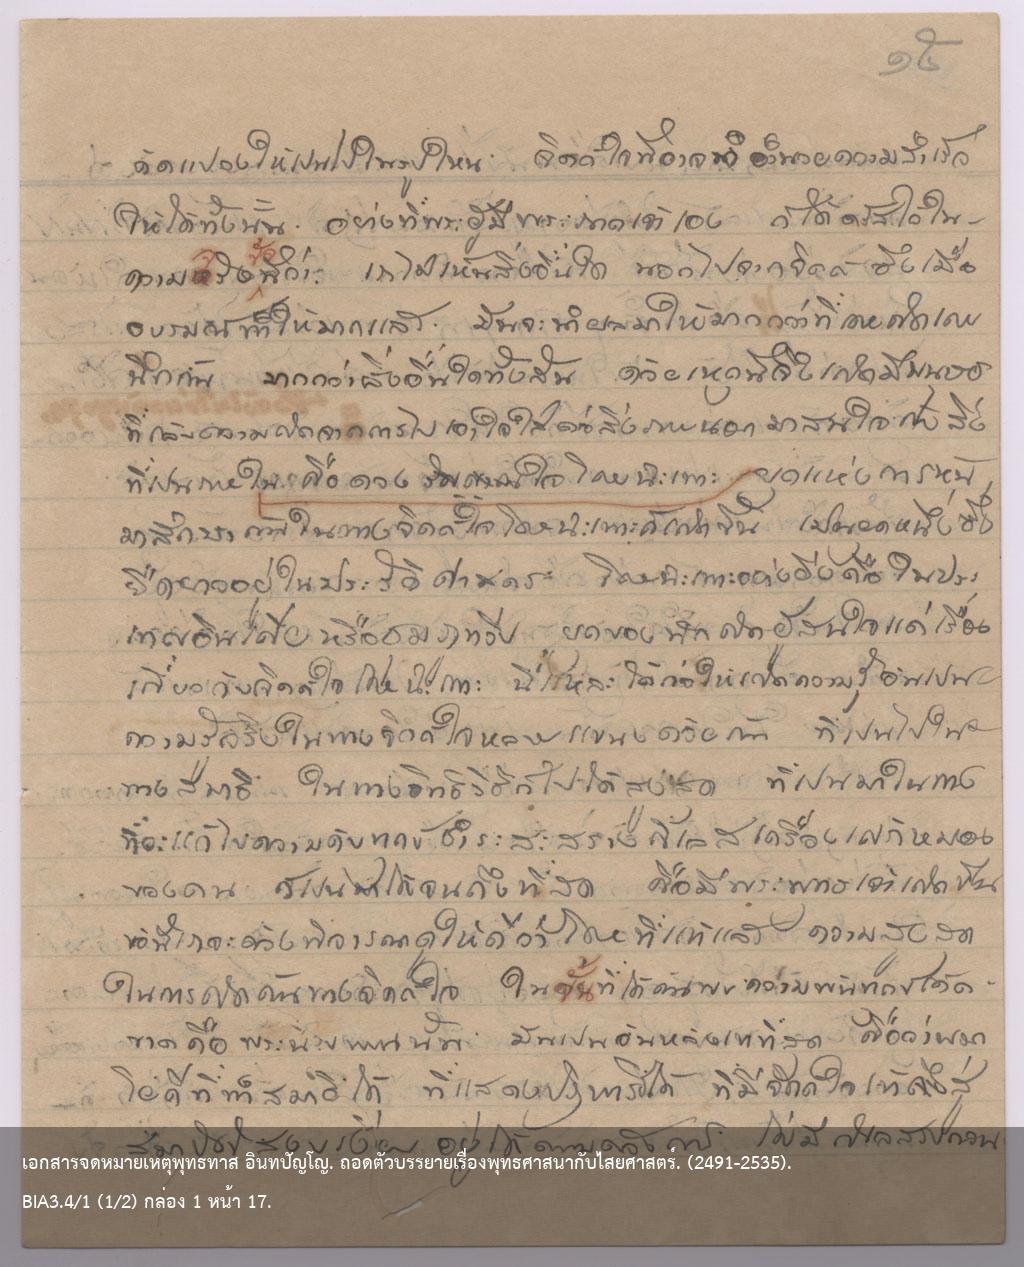 ๑๕
ดัดแปลงให้เป็นไปในรูปไหน จิตต์ใจก็อาจอำนวยความสำเร็จ
ให้ได้ทั้งนั้น อย่างที่พระผู้มีพระภาคเจ้าเอง ก็ได้ตรัสไว้ใน
ความจริงข้อนี้ว่า: เราไม่เห็นสิ่งอื่นใด นอกไปจากจิตต์ ซึ่งเมื่อ
อบรมให้มากแล้ว มันจะนำผลมาให้มากกว่าที่เคยคิดเคย
นึกกัน มากกว่าสิ่งอื่นใดทั้งสิ้น ด้วยเหตุนี้จึงเกิดมีมนุษย์
ที่ความคิดจากการไปเอาใจใส่ต่อสิ่งภายนอก มาสนใจกับสิ่ง
ที่เป็นภายใน คือดวง ใจโดยฉะเพาะ ยุคแห่งการหัน
มาศึกษากันในทางจิตต์ใจโดยฉะเพาะก็เกิดขึ้น เป็นยุคหนึ่งซึ่ง
ยืดยาวอยู่ในประวัติศาสตร์ โดยฉะเพาะอย่างยิ่งคือในประ
เทศอินเดีย หรือชมภูทวีป ยุคของนักคิดผู้สนใจแต่เรื่อง
เกี่ยวกับจิตต์ใจโดยฉะเพาะ นี่แหละได้ก่อให้เกิดความรู้อันเป็น
ความรู้จริงในทางจิตต์ใจหลายแขนงด้วยกัน ที่เป็นไปใน
ทางสมาธิ ในทางอิทธิวิธีก็ไปได้สูงสุด ที่เป็นมาในทาง
ที่จะแก้ไขความดับทุกข์ชำระสะสางกิเลสเครื่องเศร้าหมอง
ของตน ก็เป็นมาได้จนถึงที่สุด คือมีพระพุทธเจ้าเกิดขึ้น
ข้อนี้เราจะต้องพิจารณาดูให้ดีว่า โดยที่แท้แล้ว ความสูงสุด
ในการคิดค้นทางจิตต์ใจ ในชั้นที่ได้ค้นพบความพ้นทุกข์เด็ด
ขาดคือพระนิพพานนั้น มันเป็นอันหลังเพที่สุด คือว่าพวก
โยคีที่ทำสมาธิได้ ที่แสดงปาฏิหาริย์ได้ ที่มีจิตต์ใจเข้าถึงสู่
อยู่ได้ตามต้องการ ไม่มีกิเลสรบกวน
เอกสารจดหมายเหตุพุทธทาส อินทปัญโญ. ถอดตัวบรรยายเรื่องพุทธศาสนากับไสยศาสตร์. (2491-2535).
BIA3.4/1 (1/2) กล่อง 1 หน้า 17.